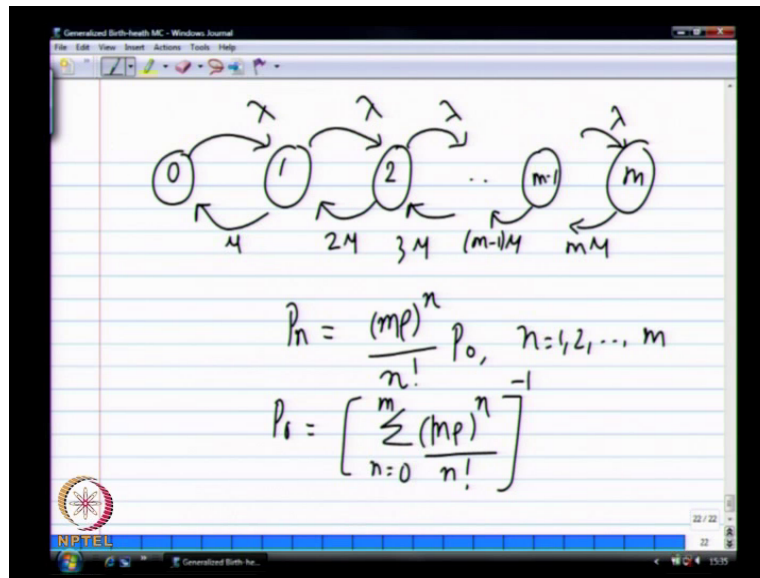 Generalized Birth-heath MC - Windows Journal
File Edit View Insert Actions Tools Help
λ λ λ λ
0 1 2 .. m-1 m
μ 2μ 3μ (m-1)μ mμ
Pn = (mρ)^n / n! P0, n=1,2,..., m
P0 = [ m Σ n=0 (mρ)^n / n! ]^-1
NPTEL
22 / 22
22
Generalized Birth-he...
15:35